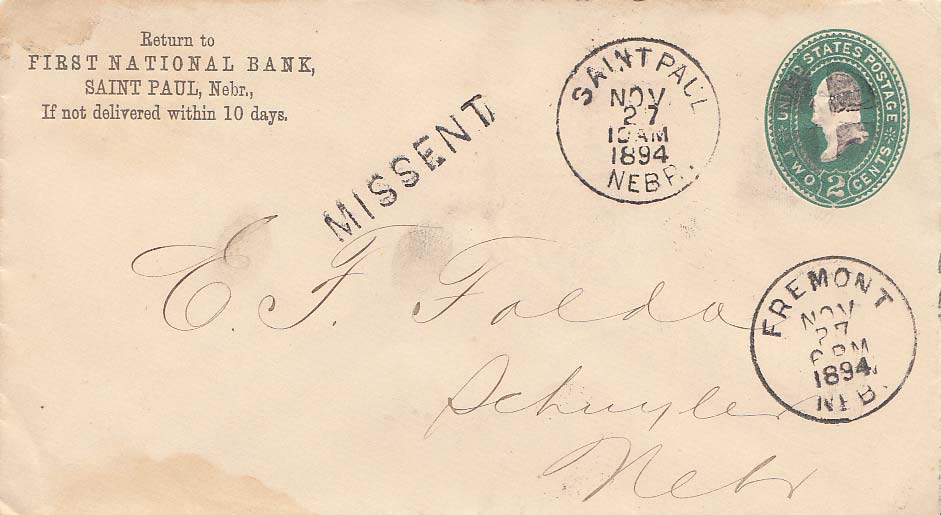 Return to
FIRST NATIONAL BANK,
SAINT PAUL, Nebr.,
If not delivered within 10 days.
MISSENT
SAINT PAUL
NOV
27
10AM
1894
NEBR.
UNITED STATES POSTAGE
TWO 2 CENTS
E. F. Folda
Schuyler
Nebr
FREMONT
NOV
27
PM
1894
NEB.